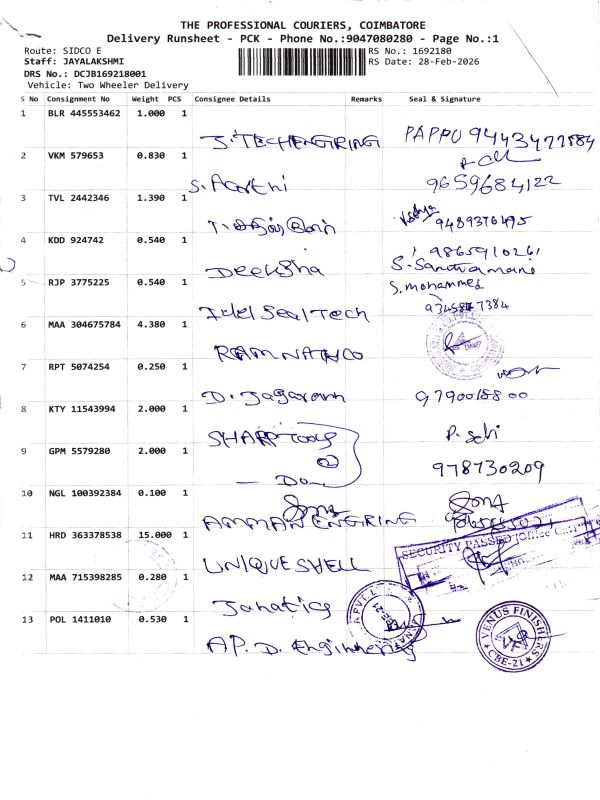 THE PROFESSIONAL COURIERS, COIMBATORE
Delivery Runsheet - PCK - Phone No.:9047080280 - Page No.:1
Route: SIDCO E
RS No.: 1692180
Staff: JAYALAKSHMI
RS Date: 28-Feb-2026
DRS No.: DCJB169218001
Vehicle: Two Wheeler Delivery
S No Consignment No Weight PCS Consignee Details Remarks Seal & Signature
1 BLR 445553462 1.000 1
S. TECH ENGIRING PAPPU
2 VKM 579653 0.830 1
S. Aarthi 9659684122
3 TVL 2442346 1.390 1
9489376495
4 KDD 924742 0.540 1
Deeksha
5 RJP 3775225 0.540 1
S. mohammed
Idel Seal Tech
6 MAA 304675784 4.380 1
RAMNATHCO
7 RPT 5074254 0.250 1
D. Jagaram
8 KTY 11543994 2.000 1
SHARP Tools
9 GPM 5579280 2.000 1
Do 978730209
10 NGL 100392384 0.100 1
AMMAN ENGIRING
11 HRD 363378538 15.000 1
SECURITY PASSED
UNIQUE SHELL
12 MAA 715398285 0.280 1
Janatics
13 POL 1411010 0.530 1
VENUS FINISHERS
VF
CBE-21
AP. D. Engineering